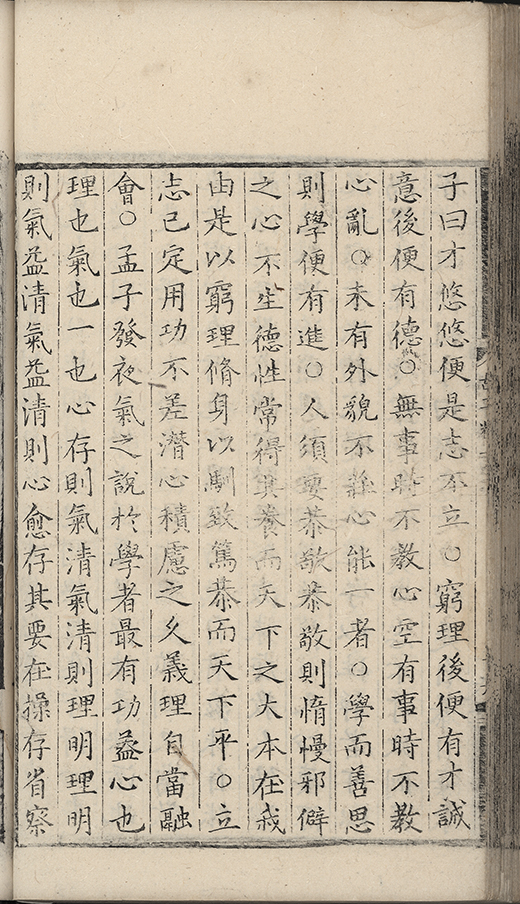 子曰才悠悠便是志不立○窮理後便有才誠
意後便有德○無事時不教心空有事時不教
心亂○未有外貌不莊心能一者○學而善思
則學便有進○人須要恭敬恭敬則惰慢邪僻
之心不生德性常得其養而天下之大本在我
由是以窮理脩身以馴致篤恭而天下平○立
志已定用功不差潛心積慮之久義理自當融
會○孟子發夜氣之說於學者最有功益心也
理也氣也一也心存則氣清氣清則理明理明
則氣益清氣益清則心愈存其要在操存省察